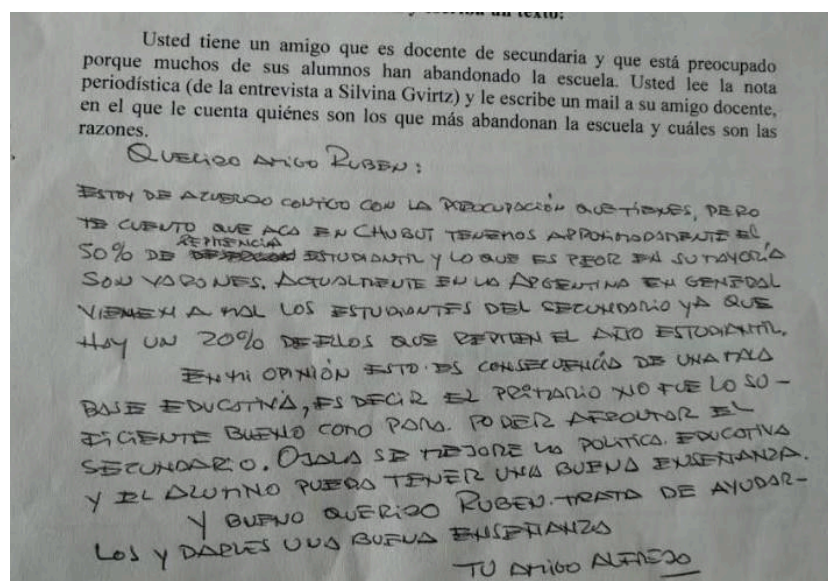 y escriba un texto:
Usted tiene un amigo que es docente de secundaria y que está preocupado
porque muchos de sus alumnos han abandonado la escuela. Usted lee la nota
periodística (de la entrevista a Silvina Gvirtz) y le escribe un mail a su amigo docente,
en el que le cuenta quiénes son los que más abandonan la escuela y cuáles son las
razones.
QUERIDO AMIGO RUBEN:
ESTOY DE ACUERDO CONTIGO CON LA PREOCUPACIÓN QUE TIENES, PERO
TE CUENTO QUE ACA EN CHUBUT TENEMOS APROXIMADAMENTE EL
50% DE REPITENCIA ESTUDIANTIL Y LO QUE ES PEOR EN SU MAYORÍA
SON VARONES. ACTUALMENTE EN LA ARGENTINA EN GENERAL
VIENEN A MAL LOS ESTUDIANTES DEL SECUNDARIO YA QUE
HAY UN 20% DE ELLOS QUE REPITEN EL AÑO ESTUDIANTIL.
EN MI OPINIÓN ESTO ES CONSECUENCIA DE UNA MALA
BASE EDUCATIVA, ES DECIR EL PRIMARIO NO FUE LO SU-
FICIENTE BUENO COMO PARA PODER AFRONTAR EL
SECUNDARIO. OJALA SE MEJORE LA POLITICA EDUCATIVA
Y EL ALUMNO PUEDA TENER UNA BUENA ENSEÑANZA.
Y BUENO QUERIDO RUBEN. TRATA DE AYUDAR-
LOS Y DARLES UNA BUENA ENSEÑANZA
TU AMIGO ALFREDO